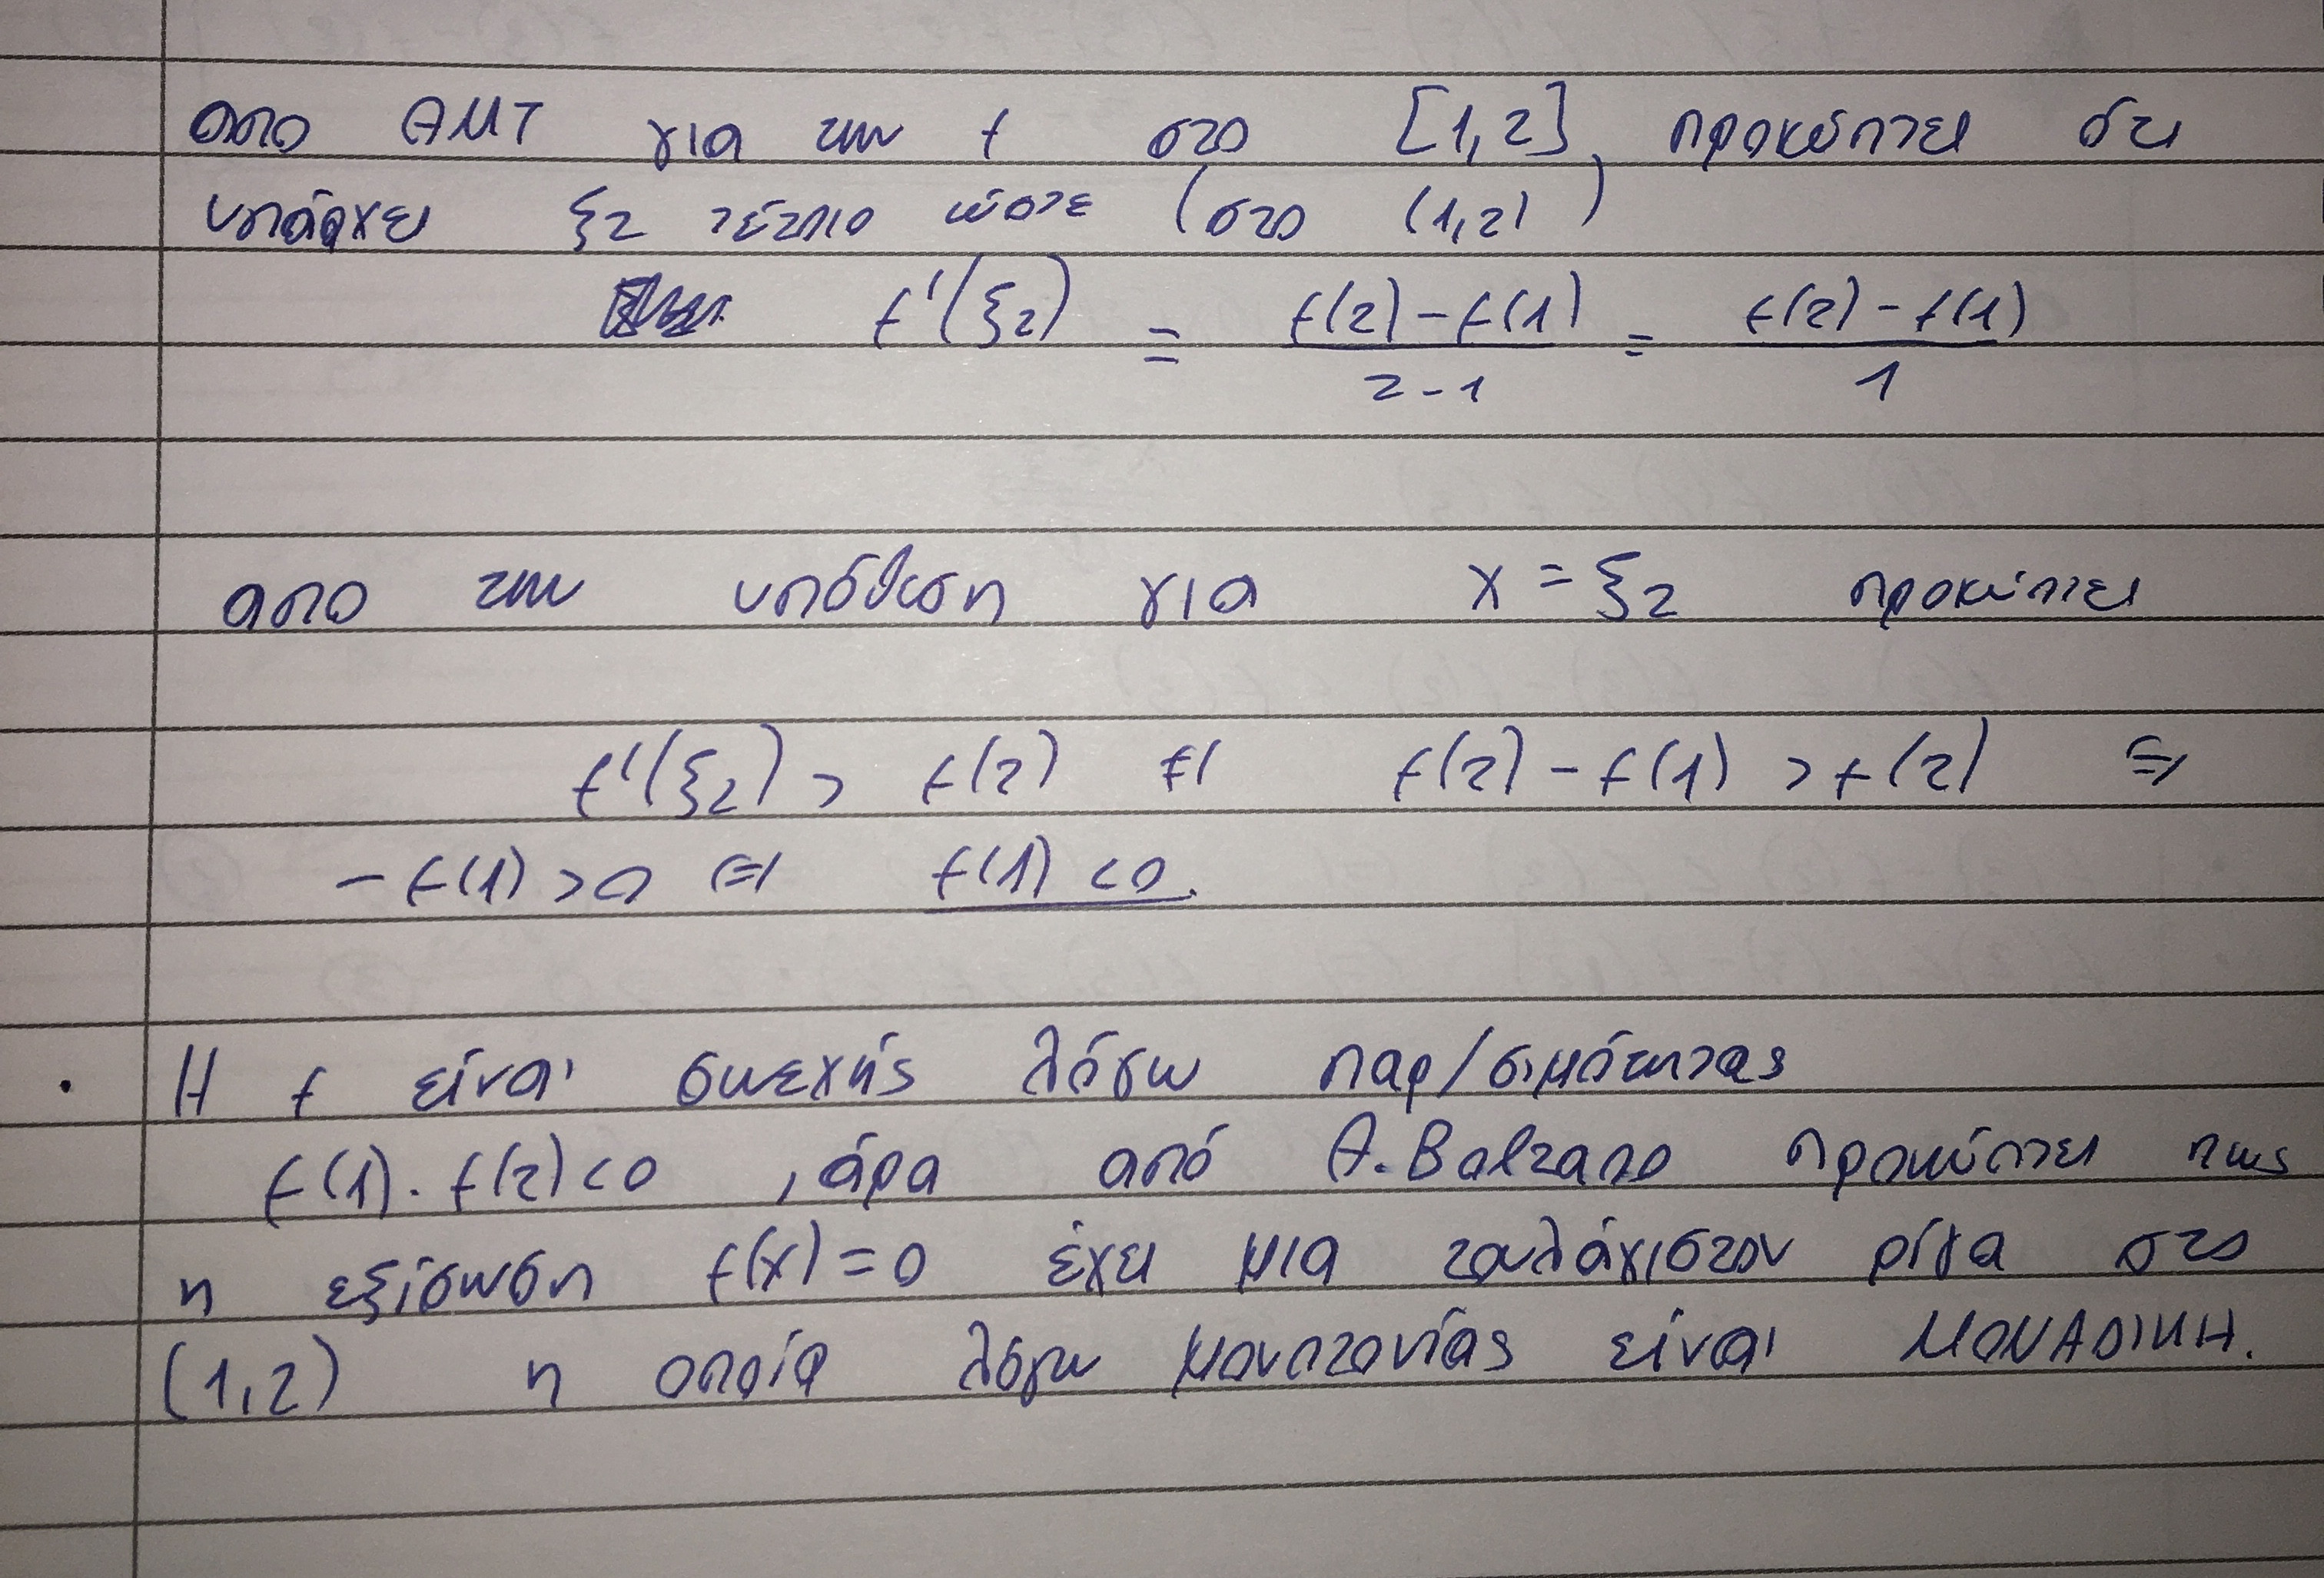 απο ΘΜΤ για την f στο [1,2], προκύπτει ότι
υπάρχει ξ2 τέτοιο ώστε (στο (1,2))
f'(ξ2) = f(2)-f(1) / 2-1 = f(2)-f(1) / 1
απο την υπόθεση για x = ξ2 προκύπτει
f'(ξ2) > f(2) ⇔ f(2) - f(1) > f(2) ⇔
- f(1) > 0 ⇔ f(1) < 0.
• Η f είναι συνεχής λόγω παρ/σιμότητας
f(1) · f(2) < 0 , άρα από Θ. Bolzano προκύπτει πως
η εξίσωση f(x) = 0 έχει μια τουλάχιστον ρίζα στο
(1,2) η οποία λόγω μονοτονίας είναι ΜΟΝΑΔΙΚΗ.